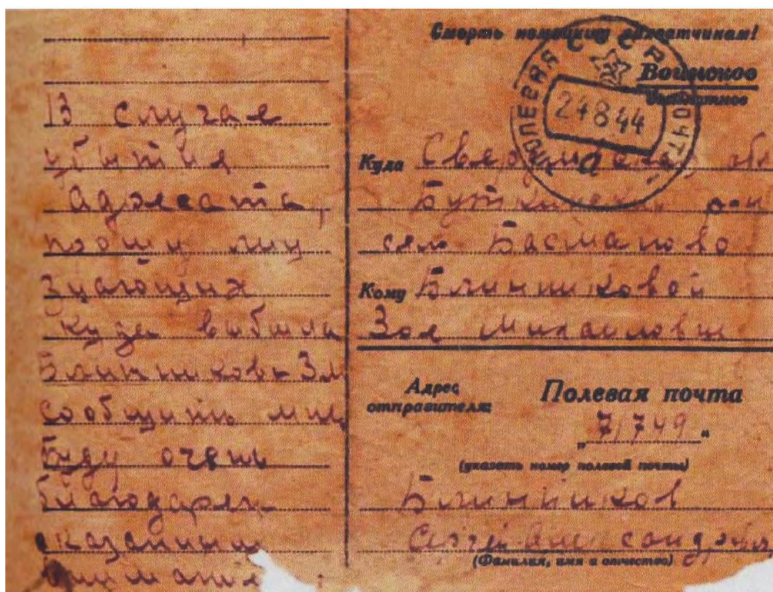 В случае
убытия
адресата,
прошу лиц
знающих
куда выбыла
Блинникова З.М
сообщить мне
буду очень
благодарен
оказанным
вниманием
Смерть немецким захватчинам!
ПОЛЕВАЯ ПОЧТА
СССР
24 8 44
а
Воинское
Бесплатное
Куда Свердловская обл
Буткинский р-н
село Басманово
Кому Блинниковой
Зое Михайловне
Адрес отправителя:
Полевая почта
„71749“
(указать номер полевой почты)
Блинников
Сергей Александрович
(Фамилия, имя и отчество)